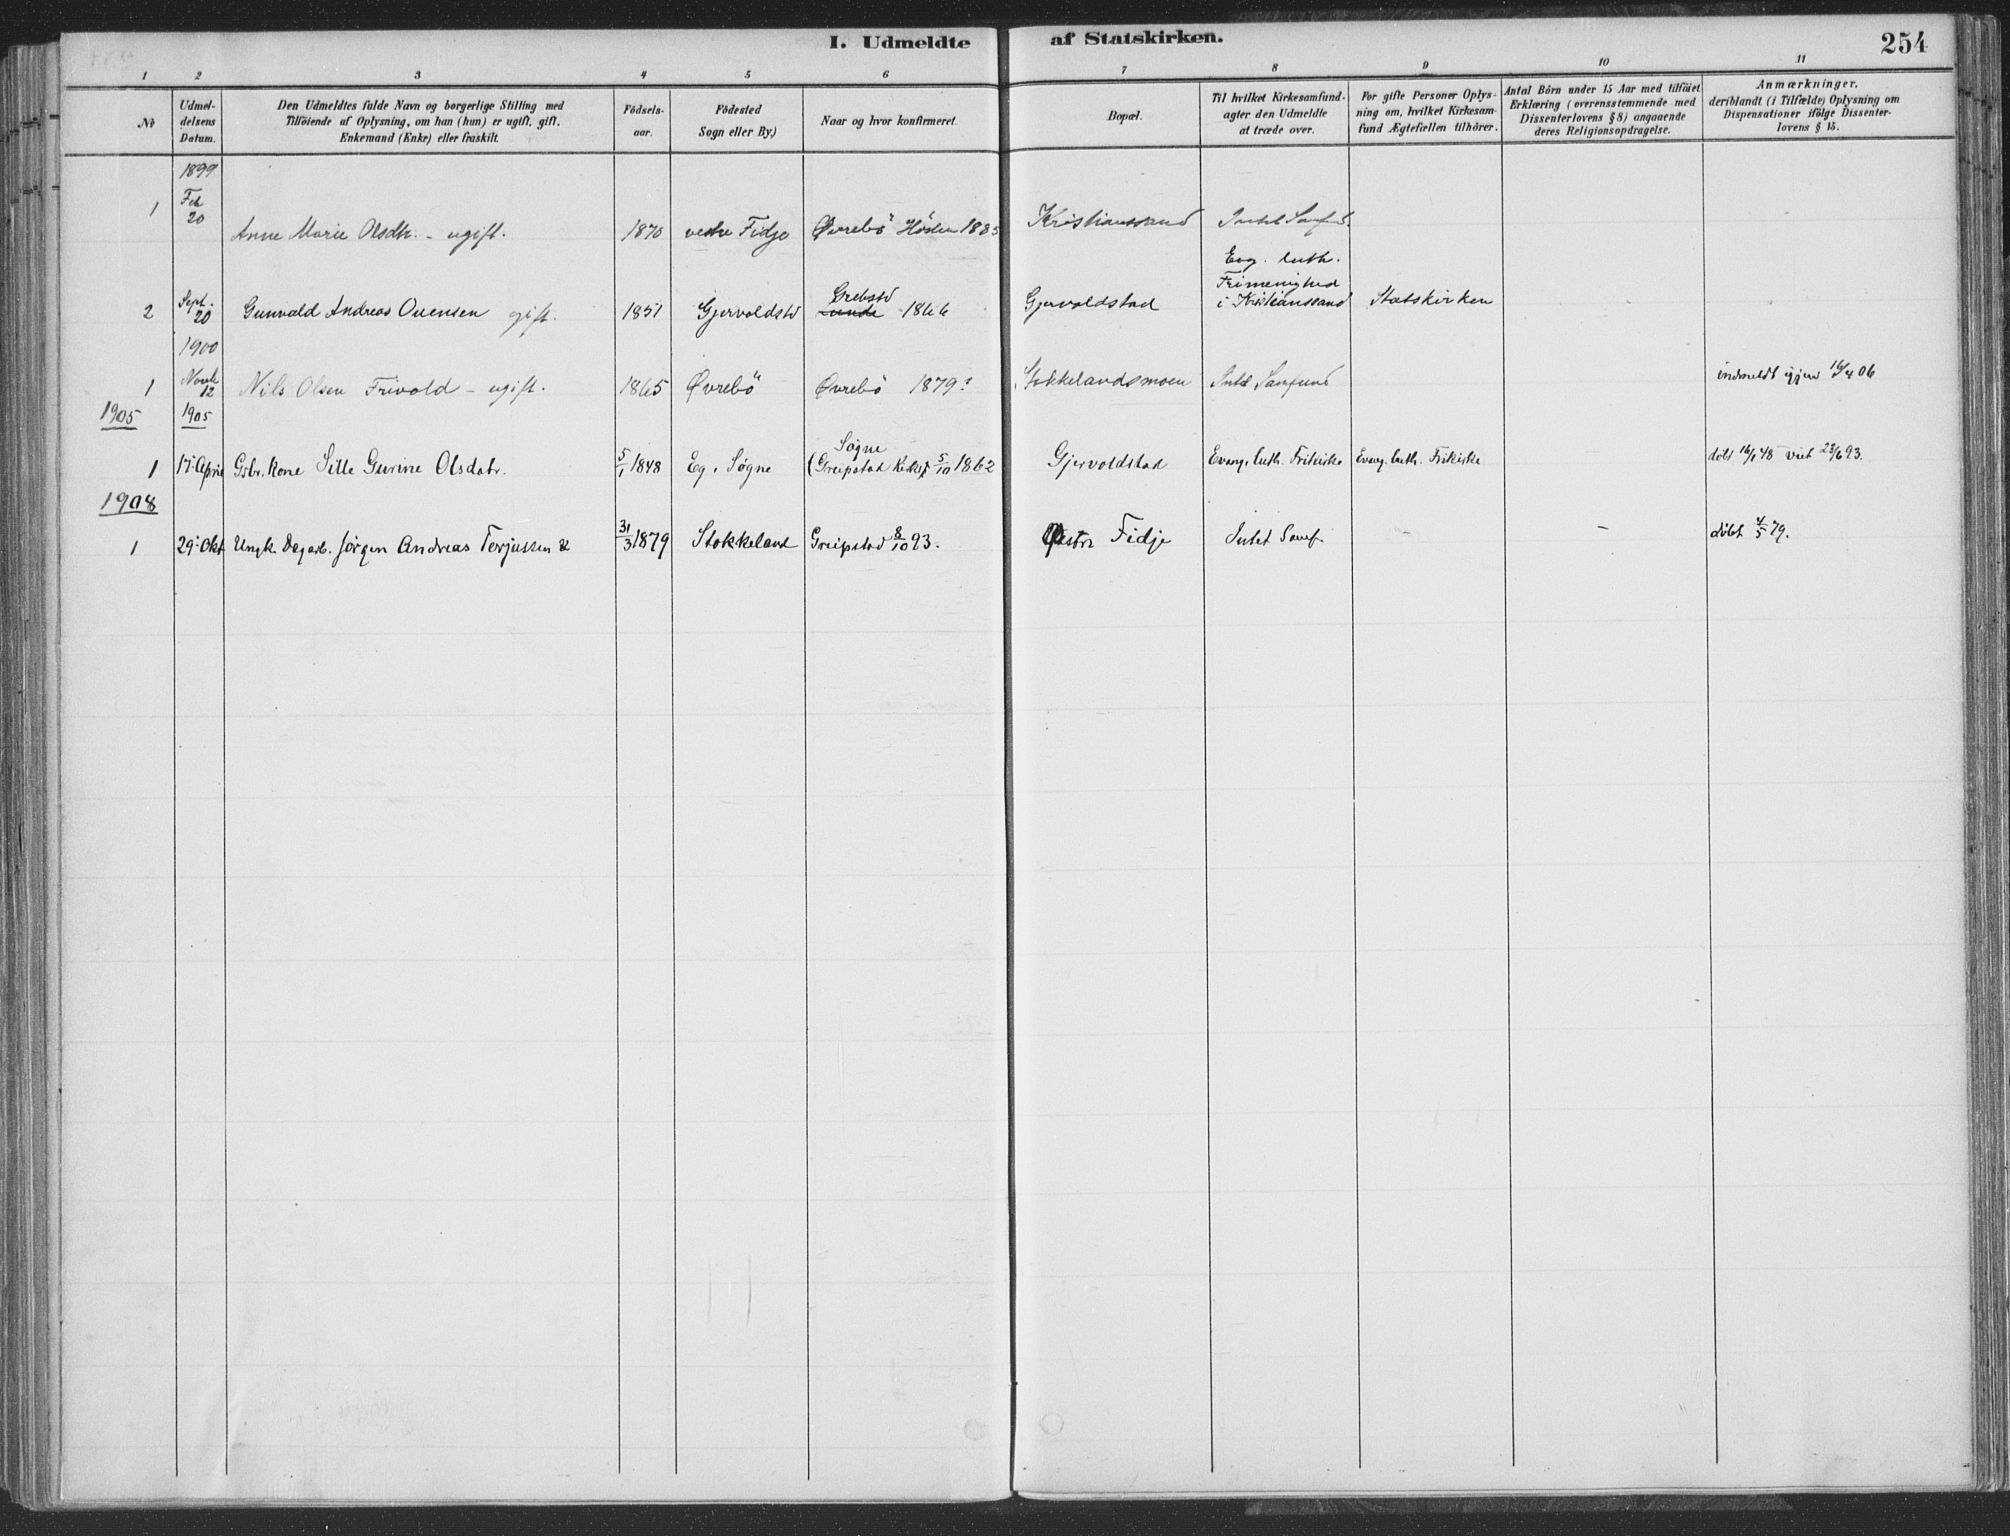 I. Udmeldte af Statskirken.
254
1 2 3 4 5 6 7 8 9 10 11
No
Udmel-
delsens
Datum.
Den Udmeldtes fulde Navn og borgerlige Stilling med
Tilföiende af Oplysning, om han (hun) er ugift, gift,
Enkemand (Enke) eller fraskilt.
Födsels-
aar.
Födested
Sogn eller By)
Naar og hvor konfirmeret.
Bopæl.
Til hvilket Kirkesamfund-
agter den Udmeldte
at træde over.
For gifte Personer Oplys-
ning om, hvilket Kirkesam-
fund Ægtefællen tilhörer.
Antal Börn under 15 Aar med tilföiet
Erklæring (overensstemmende med
Dissenterlovens § 8) angaaende
deres Religionsopdragelse.
Anmærkninger,
deriblandt (i Tilfælde) Oplysning om
Dispensationer ifölge Dissenter-
lovens § 15.
1899
Feb
1 20
Anne Marie Olsdtr. - ugift. 1870 vestre Fidje Øvrebö Hösten 1885 Kristianssand Intet Samfund.
Evg. luth.
Frimenighed
i Kristianssand
Grebstd
2 Sept. 20 Gunvald Andreas Ouensen gift. 1851 Gjervoldstd 1866 Gjervoldstad Statskirken
1900
1 Novb 12 Nils Olsen Frivold - ugift. 1865 Øvrebö Øvrebö 1879? Stokkelandsmoen Intet Samfund indmeldt igjen 16/4 06
1905 1905
Søgne
1 17. April Gbr. kone Sille Gurine Olsdatr. 5/1 1848 Eg, Søgne (Greipstad Kirke) 5/10 1862 Gjervoldstad Evang. luth. Frikirke Evang. luth. Frikirke döbt 16/1 48 viet 23/6 93.
1908
1 29. Okt Ungk. Dagarb. Jörgen Andreas Terjussen 31/3 1879 Stokkeland Greipstad 8/10 93. Vestre Fidje Intet Samf - döbt 4/5 79.